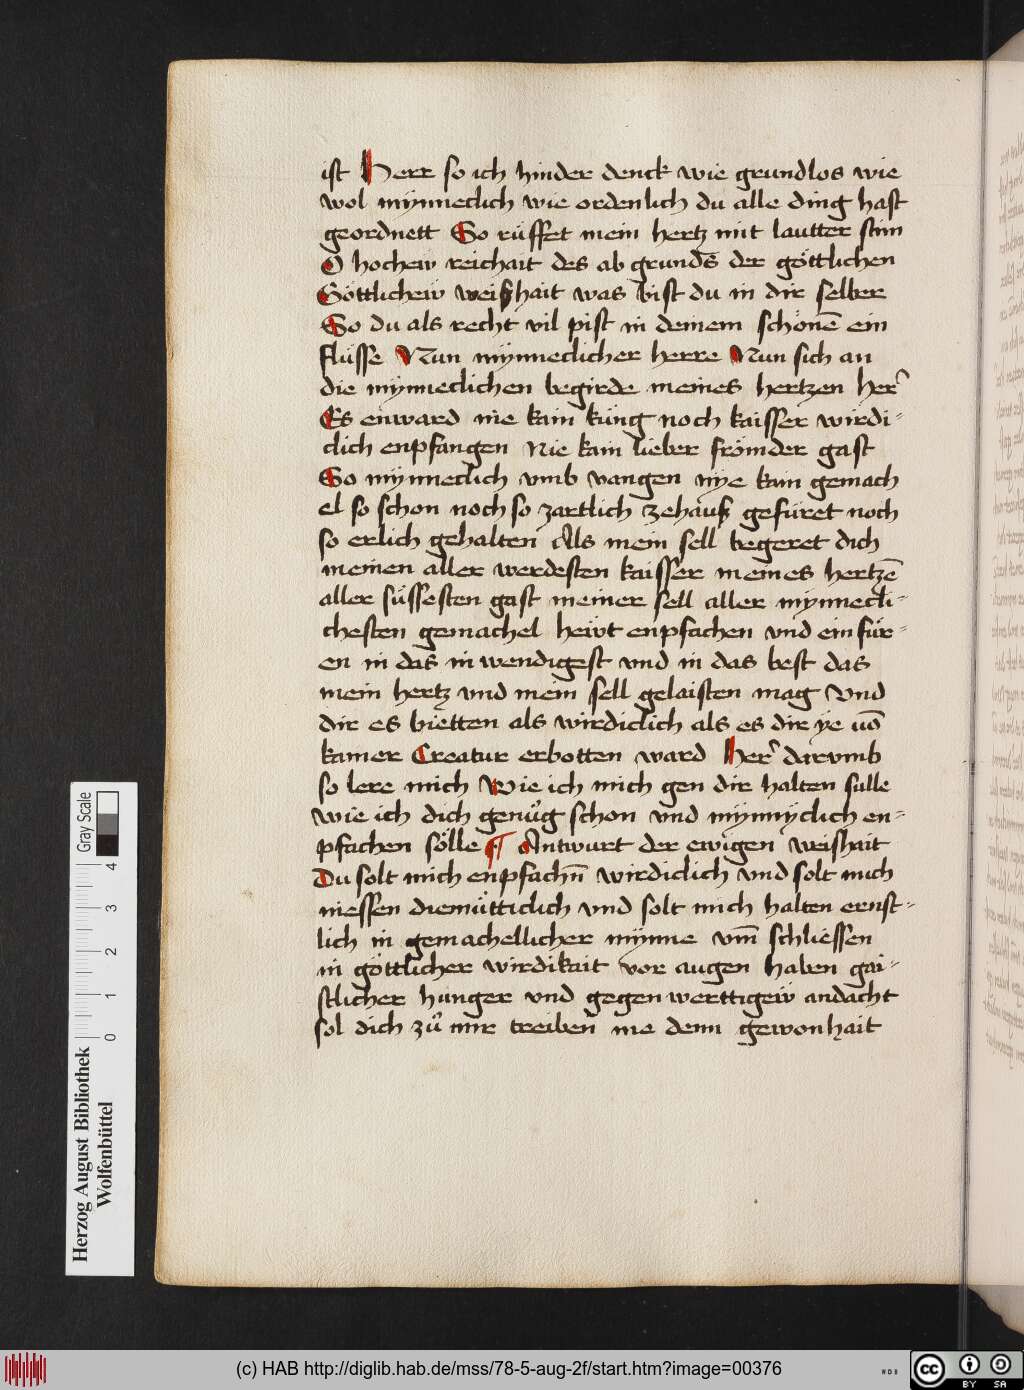 ist Herr so ich hinder denck wie grundlos wie
wol mynneclich wie ordenlich du alle ding hast
geordnett So rüffet mein hertz mit lautter stim
O hochew reichait des ab grunds der göttlichen
Göttlichew weishait was bist du in dir selber
So du als recht vil pist in deinem schönē ein
flüsse Nun mÿnneclicher herre Nun sich an
die mÿnneclichen begirde meines hertzen her
Es enward nie kain küng noch kaisser wirdi-
clich enpfangen Nie kain lieber frömder gast
So mÿnneclich vmb vangen nye kain gemach
el so schon noch so zartlich zehauß gefüret noch
so erlich gehalten Als mein sell begeret dich
meinen aller werdesten kaisser meines hertzē
aller süssesten gast meiner sell aller mynnecli-
chesten gemachel hewt enpfachen vnd ein für-
en in das in wendigest vnd in das best das
mein hertz vnd mein sell gelaisten mag Vnd
dir es bietten als wirdiclich als es dir ye vō
kainer Creatur erbotten ward Her darvmb
so lere mich Wie ich mich gen dir halten sulle
wie ich dich genůg schon vnd mynnyclich en-
pfachen sölle ¶ Antwurt der ewigen weishait
Du solt mich enpfachn̄ wirdiclich vnd solt mich
niessen diemütticlich vnd solt mich halten ernst-
lich in gemachellicher mynne vm̄ schliessen
in göttlicher wirdikait vor augen haben gai-
stlicher hunger vnd gegen werttigew andacht
sol dich zů mir treiben me denn gewonhait
Herzog August Bibliothek
Wolfenbüttel
0 1 2 3 4
Gray Scale
(c) HAB http://diglib.hab.de/mss/78-5-aug-2f/start.htm?image=00376
WDB
cc BY SA